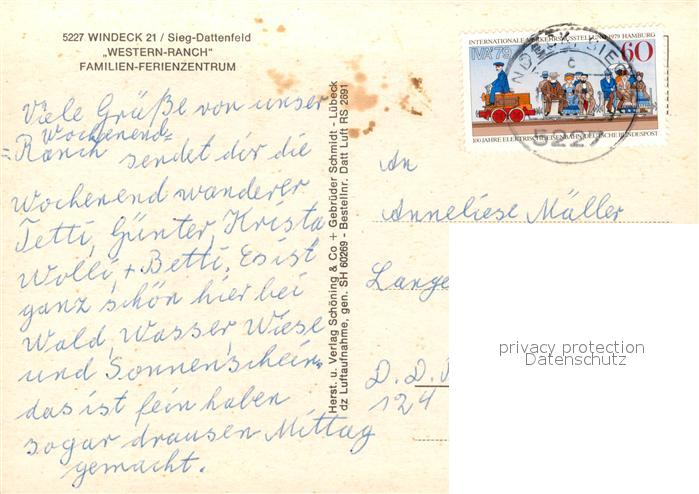 5227 WINDECK 21 / Sieg-Dattenfeld
„WESTERN-RANCH"
FAMILIEN-FERIENZENTRUM
Viele Grüße von unser
Wochenend=
=Ranch sendet dir die
Wochenend wanderer
Tetti, Günter, Krista
Wolli, + Betti. Es ist
ganz schön hier bei
Wald, Wasser, Wiese
und Sonnenschein=
das ist fein haben
sogar drausen Mittag
gemacht.
Herst. u. Verlag Schöning & Co + Gebrüder Schmidt - Lübeck
dz Luftaufnahme, gen. SH 60269 - Bestellnr. Datt Luft RS 2691
INTERNATIONALE VERKEHRSAUSSTELLUNG 1979 HAMBURG
IVA'79
60
100 JAHRE ELEKTRISCHE EISENBAHN DEUTSCHE BUNDESPOST
c
522
An
Anneliese Müller
Lange
D. D.
124
privacy protection
Downloadversion